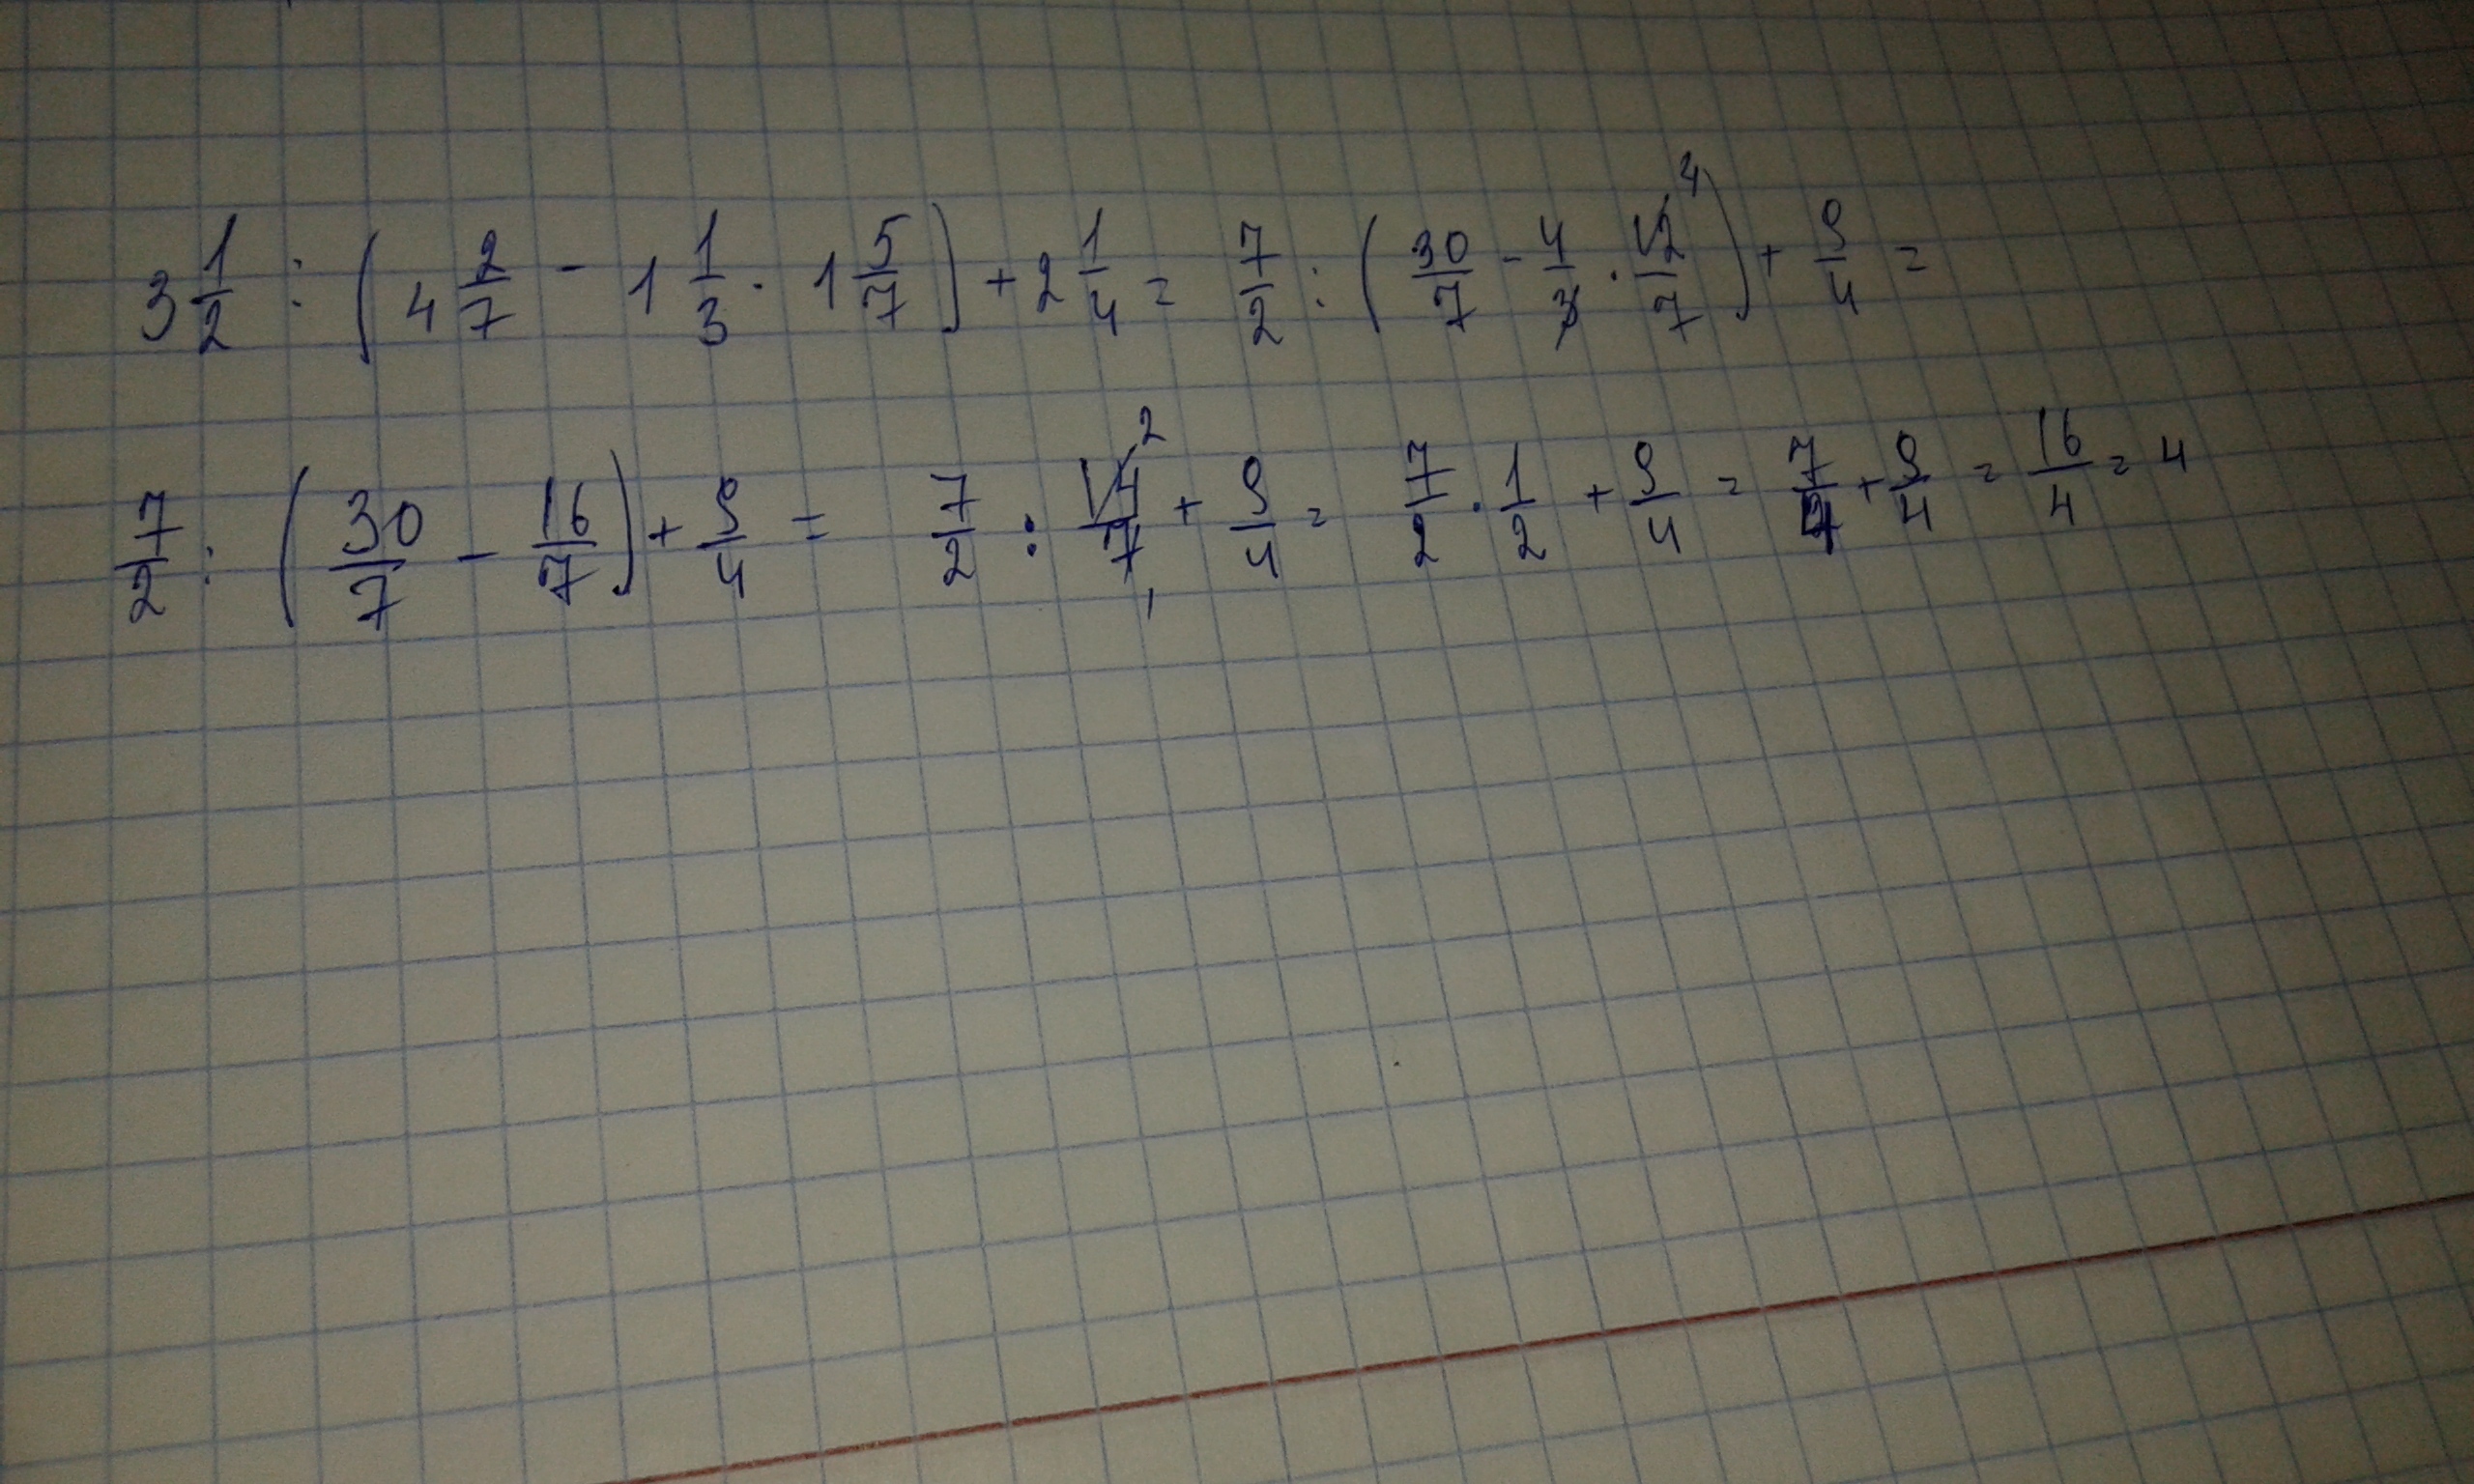 3 1/2 : (4 2/7 - 1 1/3 · 1 5/7) + 2 1/4 = 7/2 : (30/7 - 4/3 · 12/7 4) + 9/4 =
7/2 : (30/7 - 16/7) + 9/4 = 7/2 : 14 2/7 1 + 9/4 = 7/2 · 1/2 + 9/4 = 7/4 + 9/4 = 16/4 = 4